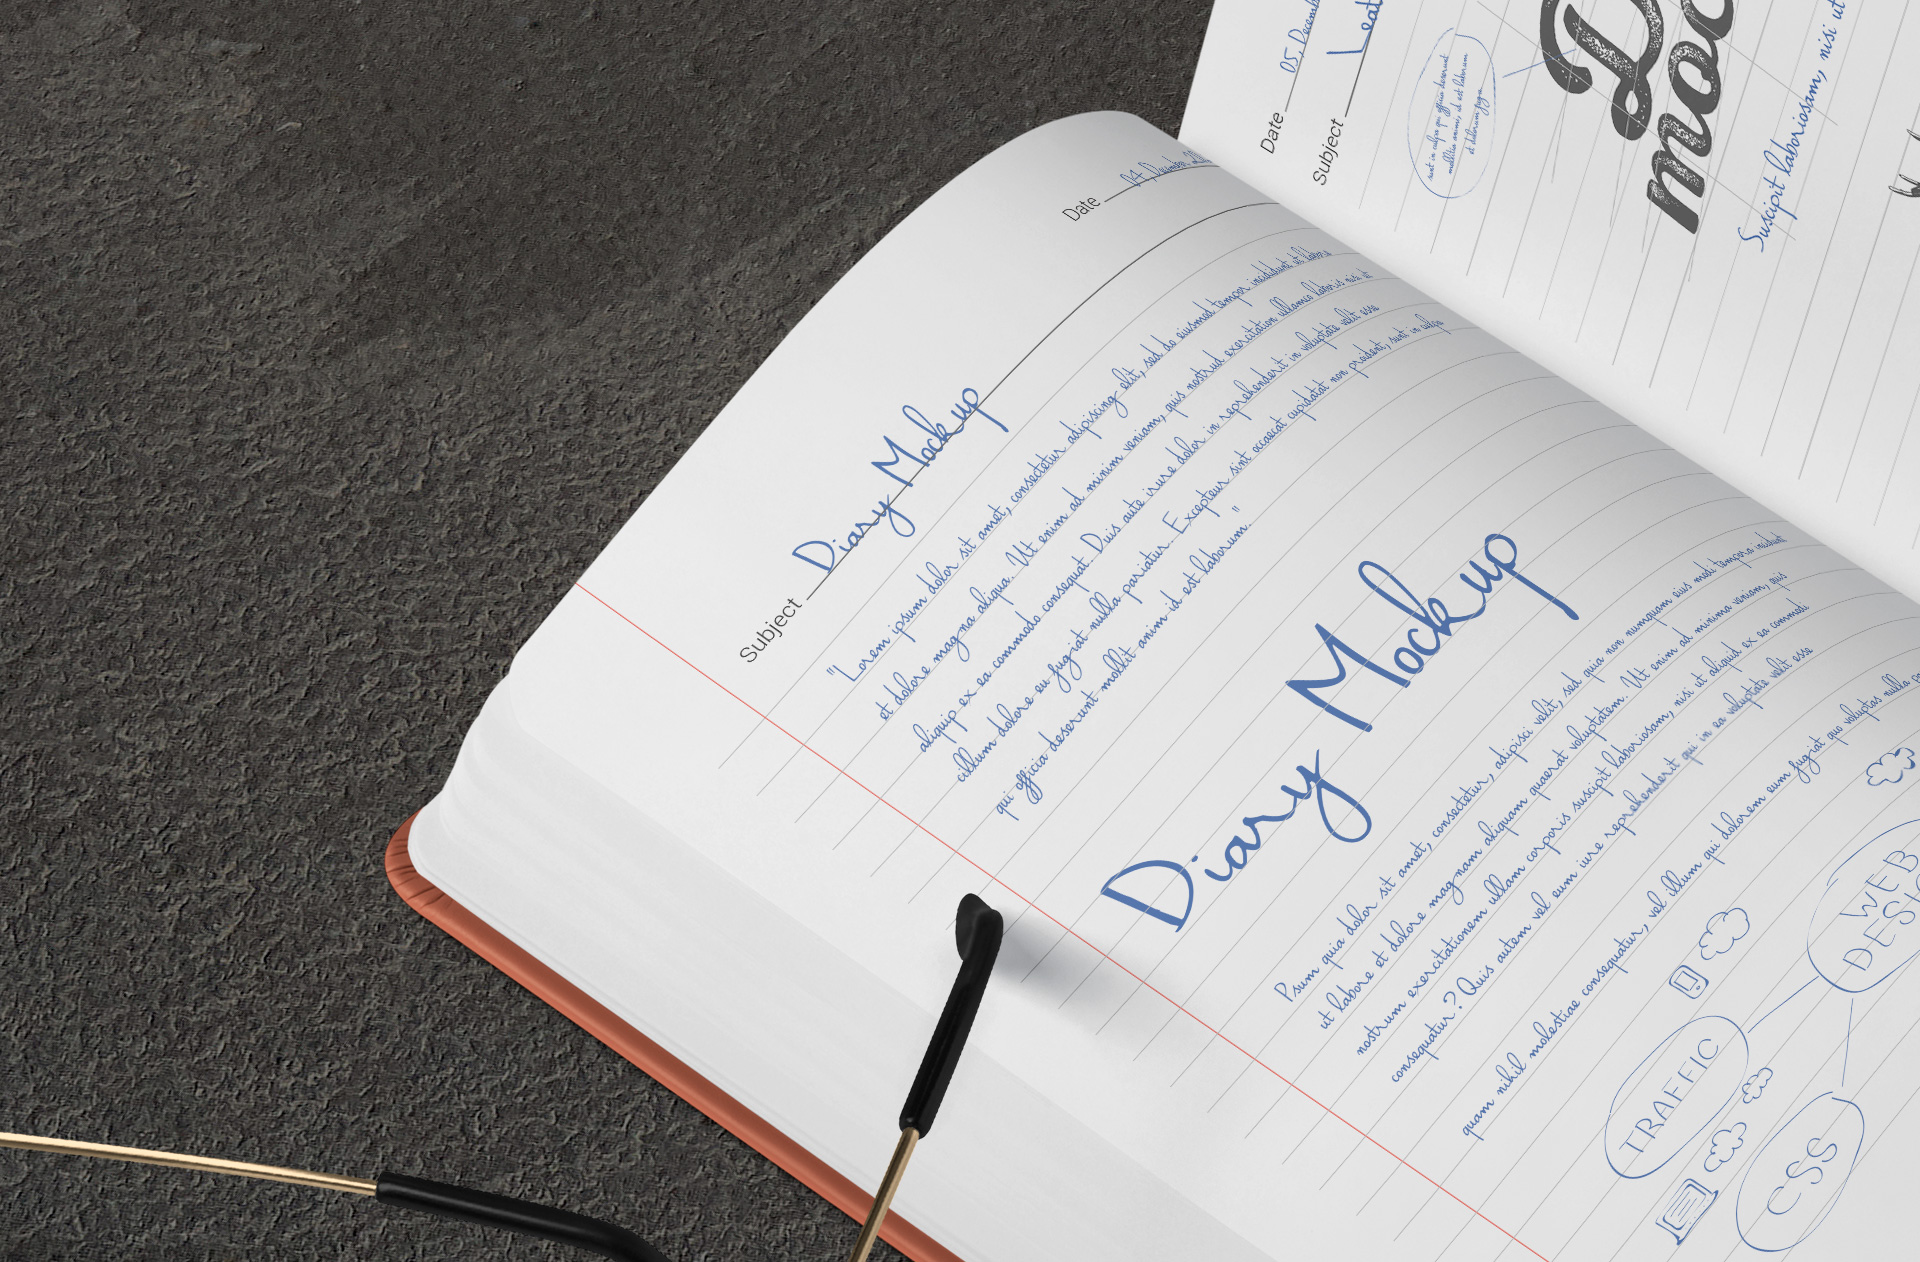 Date 04 December
Subject Diary Mockup
"Lorem ipsum dolor sit amet, consectetur adipiscing elit, sed do eiusmod tempor incididunt ut labore
et dolore magna aliqua. Ut enim ad minim veniam, quis nostrud exercitation ullamco laboris nisi ut
aliquip ex ea commodo consequat. Duis aute irure dolor in reprehenderit in voluptate velit esse
cillum dolore eu fugiat nulla pariatur. Excepteur sint occaecat cupidatat non proident, sunt in culpa
qui officia deserunt mollit anim id est laborum."
Diary Mockup
Psum quia dolor sit amet, consectetur, adipisci velit, sed quia non numquam eius modi tempora incidunt
ut labore et dolore magnam aliquam quaerat voluptatem. Ut enim ad minima veniam, quis
nostrum exercitationem ullam corporis suscipit laboriosam, nisi ut aliquid ex ea commodi
consequatur? Quis autem vel eum iure reprehenderit qui in ea voluptate velit esse
quam nihil molestiae consequatur, vel illum qui dolorem eum fugiat quo voltas nulla
WEB
TRAFFIC
CSS
Date 05, Decemb
Subject
sunt in culpa qui officia deserunt
mollitia animi, id est laborum
et dolorum fuga
Suscipit laboriosam, nisi ut